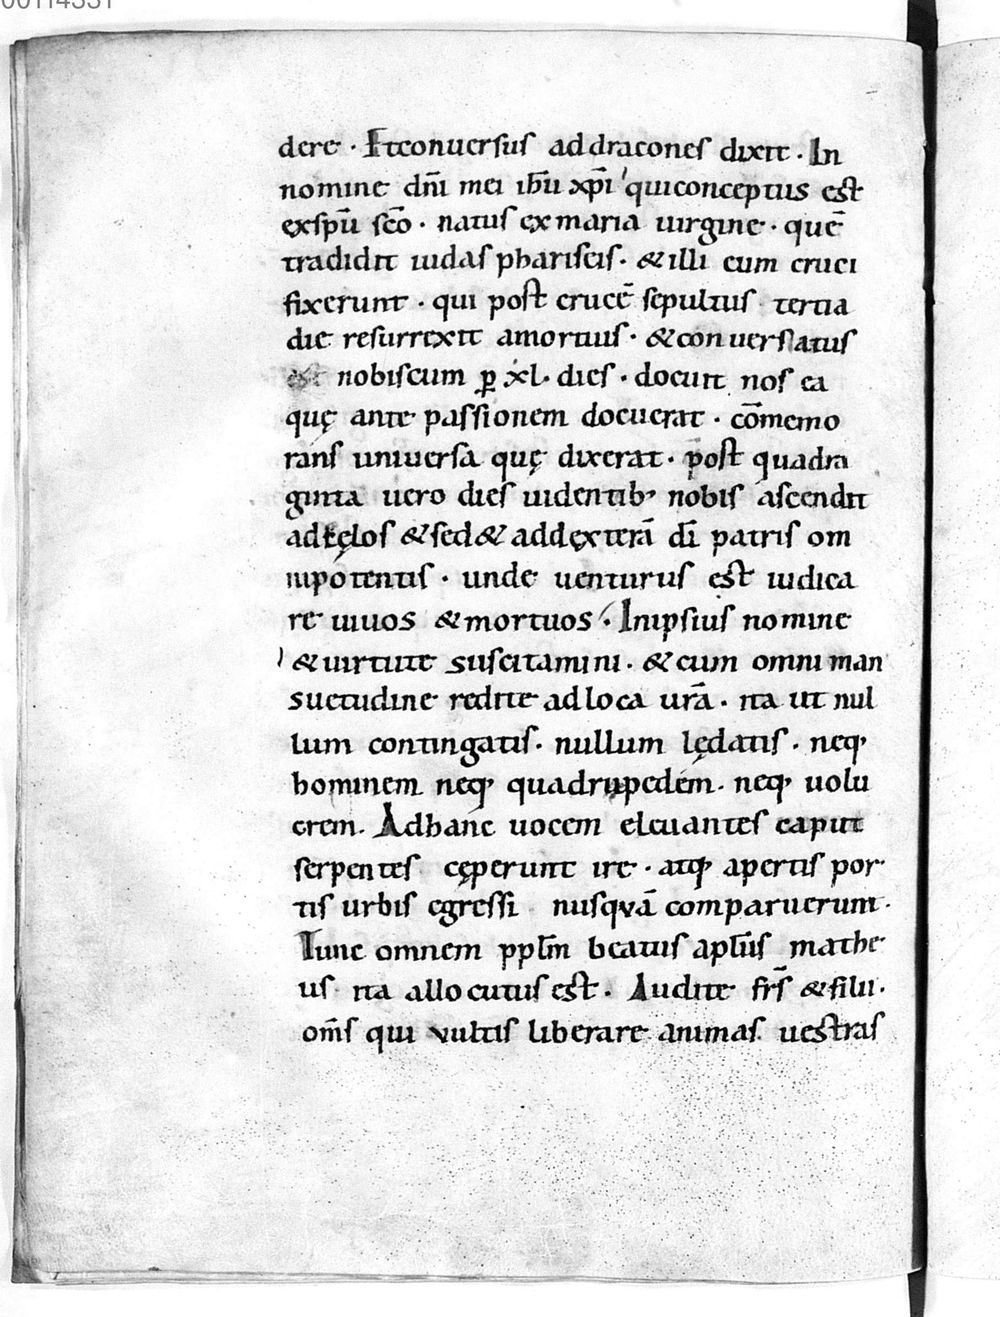 dere · Etconuersus addracones dixit · In
nomine dn̄i mei ih̄u xp̄i quiconceptus est
exspū sc̄o · natus exmaria uirgine · quē
tradidit iudas phariseis · &illi eum cruci
fixerunt · qui post crucē sepultus tertia
die resurrexit amortuis · &conuersatus
est nobiscum ꝑ xl· dies · docuit nos ea
quę ante passionem docuerat · cōmemo
rans uniuersa quę dixerat · post quadra
ginta uero dies uidentib; nobis ascendit
adcęlos &sed& addęxterā dī patris om
nipotentis · unde uenturus est iudica
re uiuos &mortuos · Inipsius nomine
&uirtute suscitamini · &cum omni man
suetudine redite adloca ur̄a · ita ut nul
lum contingatis · nullum lędatis · neq;
hominem neq; quadrupedem · neq; uolu
crem · Adhanc uocem eleuantes caput
serpentes cęperunt ire · atq; apertis por
tis urbis egressi nusqvā comparuerunt ·
Tunc omnem ppl̄m beatus apl̄us mathe
us ita allocutus est · Audite fr̄s &filii ·
om̄s qui vultis liberare animas uestras